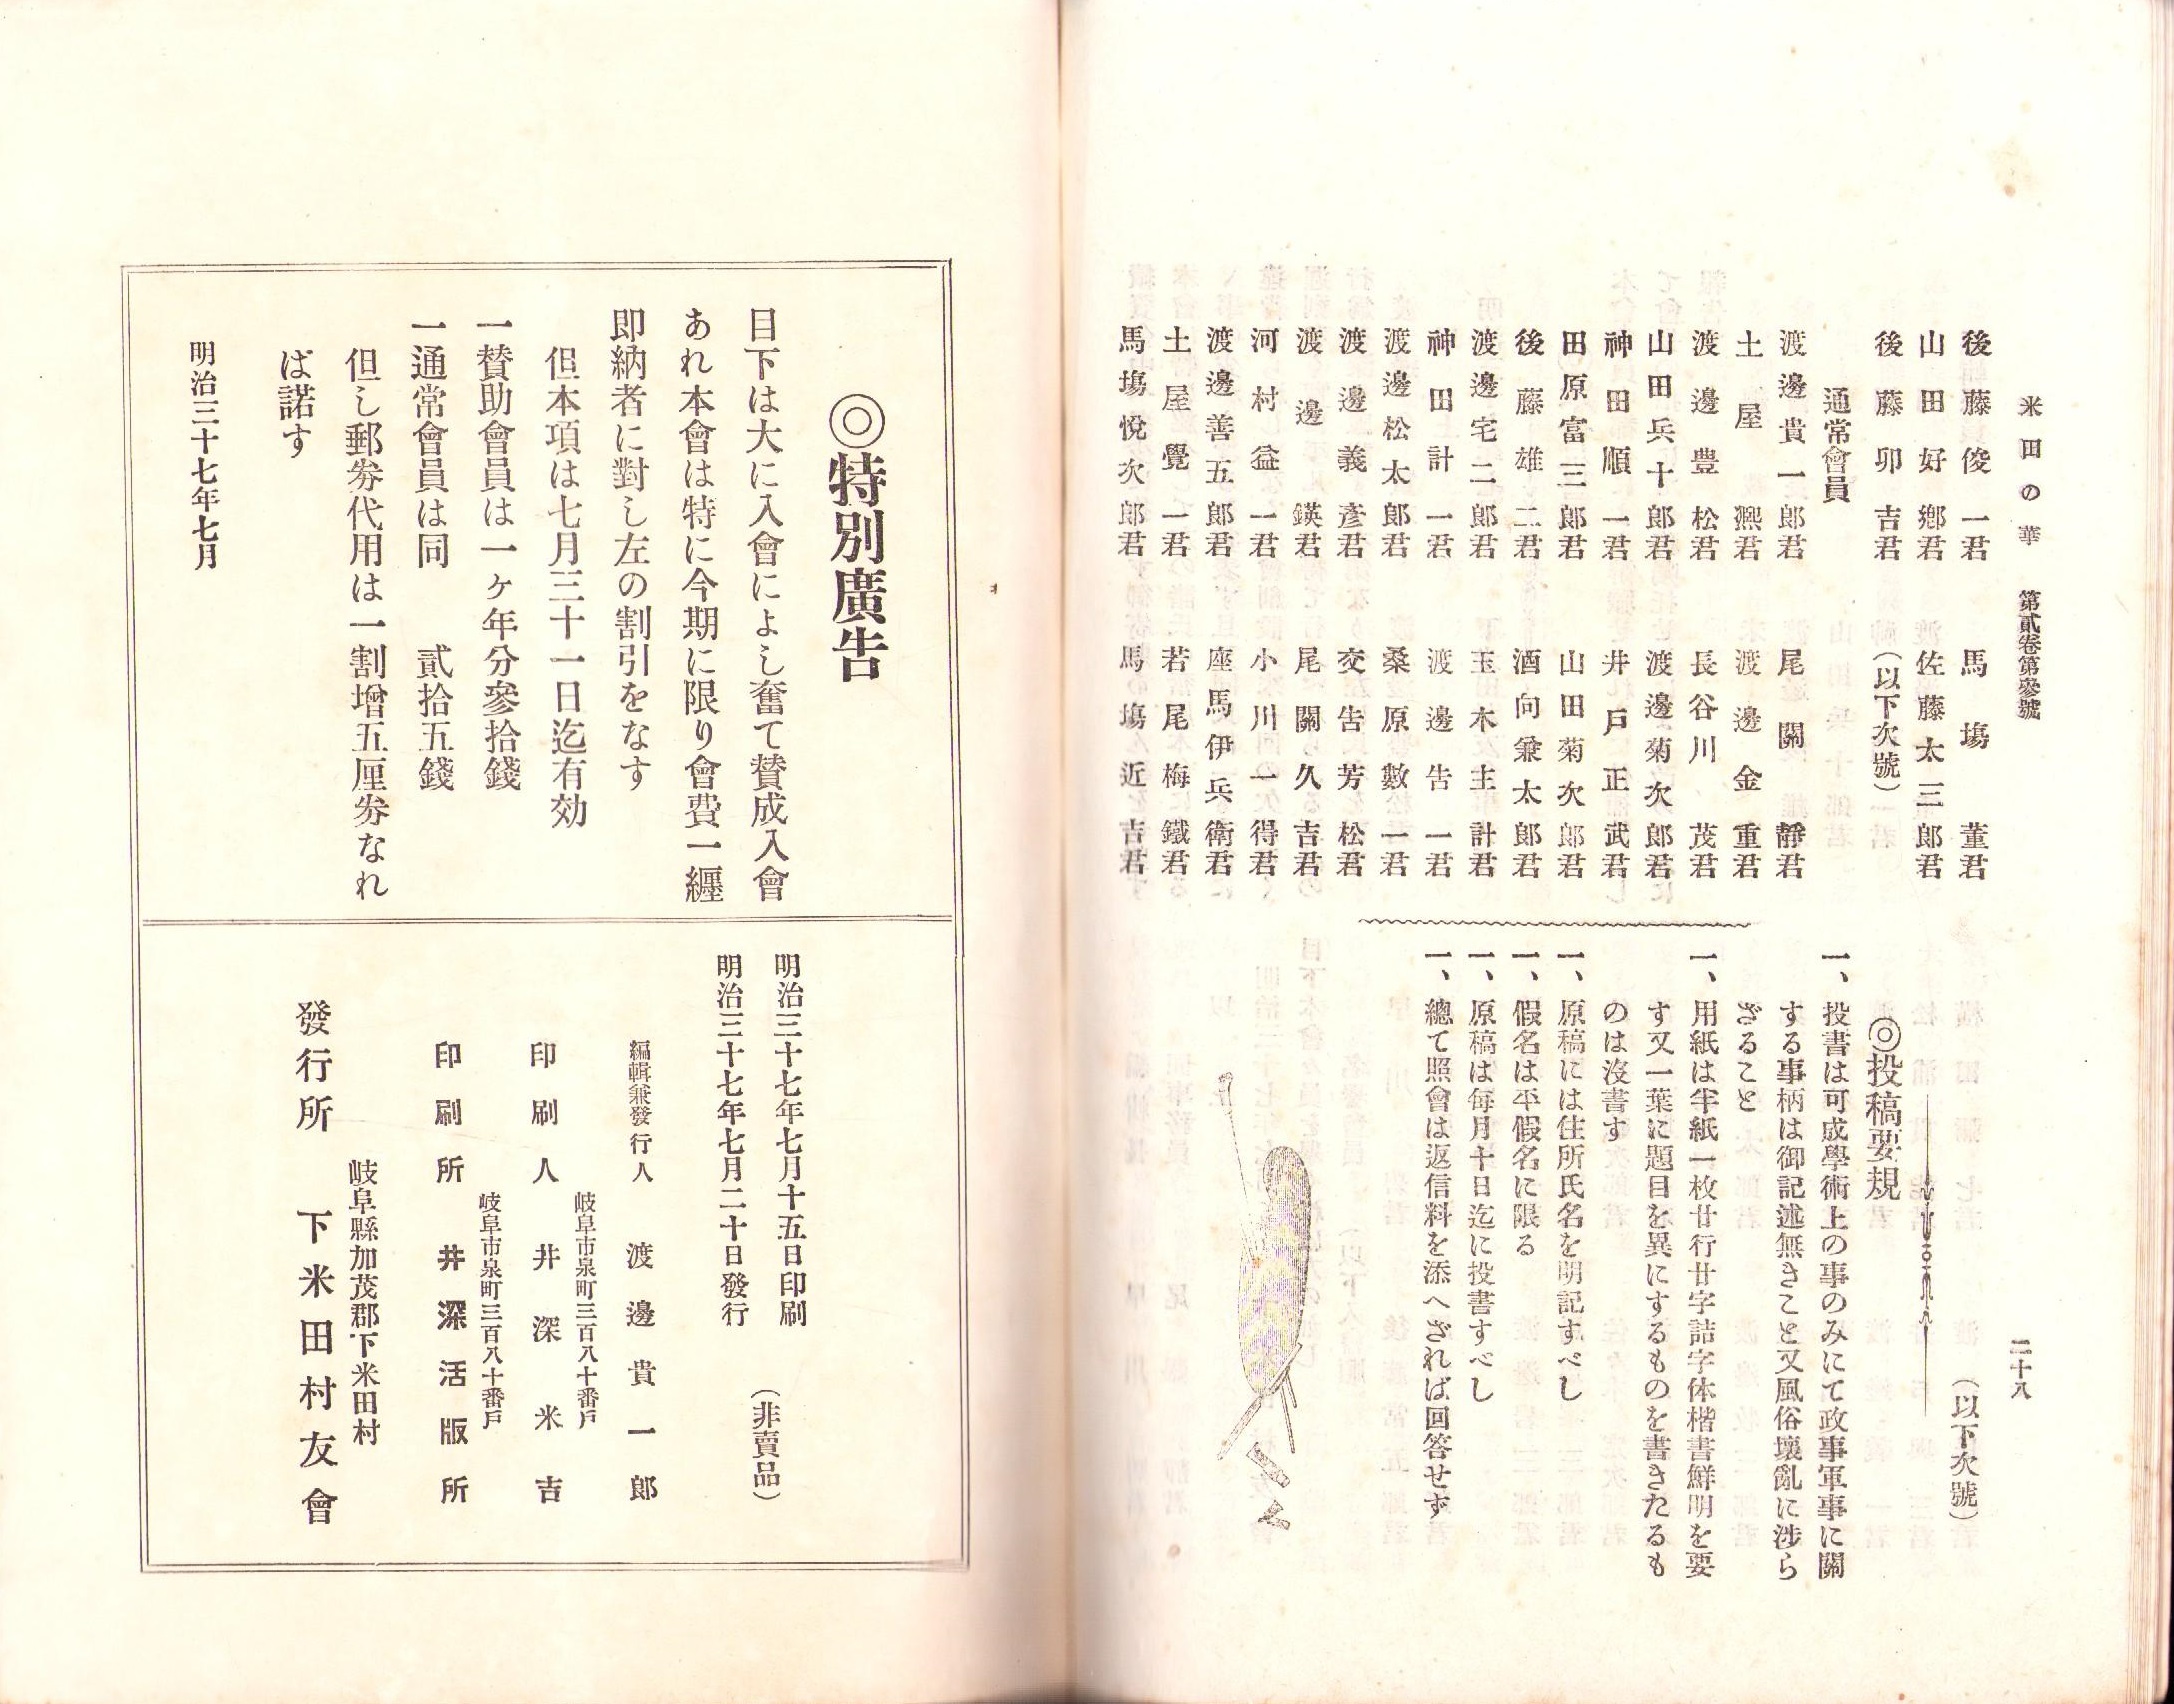 米田の華　第貳卷第參號　二十八
後藤俊一君　馬塲董君
山田好鄕君　佐藤太三郎君
後藤卯吉君　（以下次號）
通常會員
渡邊貴一郎君　尾關靜君
土屋凞君　渡邊金重君
渡邊豊松君　長谷川茂君
山田兵十郎君　渡邊菊次郎君
神田順一君　井戸正武君
田原富三郎君　山田菊次郎君
後藤雄二君　酒向兼太郎君
渡邊宅二郎君　玉木主計君
神田計一君　渡邊告一君
渡邊松太郎君　桑原數一君
渡邊義彥君　交告芳松君
渡邊鍈君　尾關久吉君
河村益一君　小川一得君
渡邊善五郎君　座馬伊兵衛君
土屋覺一君　若尾梅鐵君
馬塲悅次郎君　馬塲近吉君
（以下次號）
◎投稿要規
一、投書は可成學術上の事のみにて政事軍事に關
する事柄は御記述無きこと又風俗壞亂に涉ら
ざること
一、用紙は半紙一枚廿行廿字詰字体楷書鮮明を要
す又一葉に題目を異にするものを書きたるも
のは沒書す
一、原稿には住所氏名を明記すべし
一、假名は平假名に限る
一、原稿は每月十日迄に投書すべし
一、總て照會は返信料を添へざれば回答せず
◎特別廣告
目下は大に入會によし奮て賛成入會
あれ本會は特に今期に限り會費一纒
即納者に對し左の割引をなす
但本項は七月三十一日迄有効
一賛助會員は一ヶ年分參拾錢
一通常會員は同　貳拾五錢
但し郵券代用は一割增五厘券なれ
ば諾す
明治三十七年七月
明治三十七年七月十五日印刷
明治三十七年七月二十日發行
（非賣品）
編輯兼發行人　渡邊貴一郎
岐阜市泉町三百八十番戶
印刷人　井深米吉
岐阜市泉町三百八十番戶
印刷所　井深活版所
岐阜縣加茂郡下米田村
發行所　下米田村友會